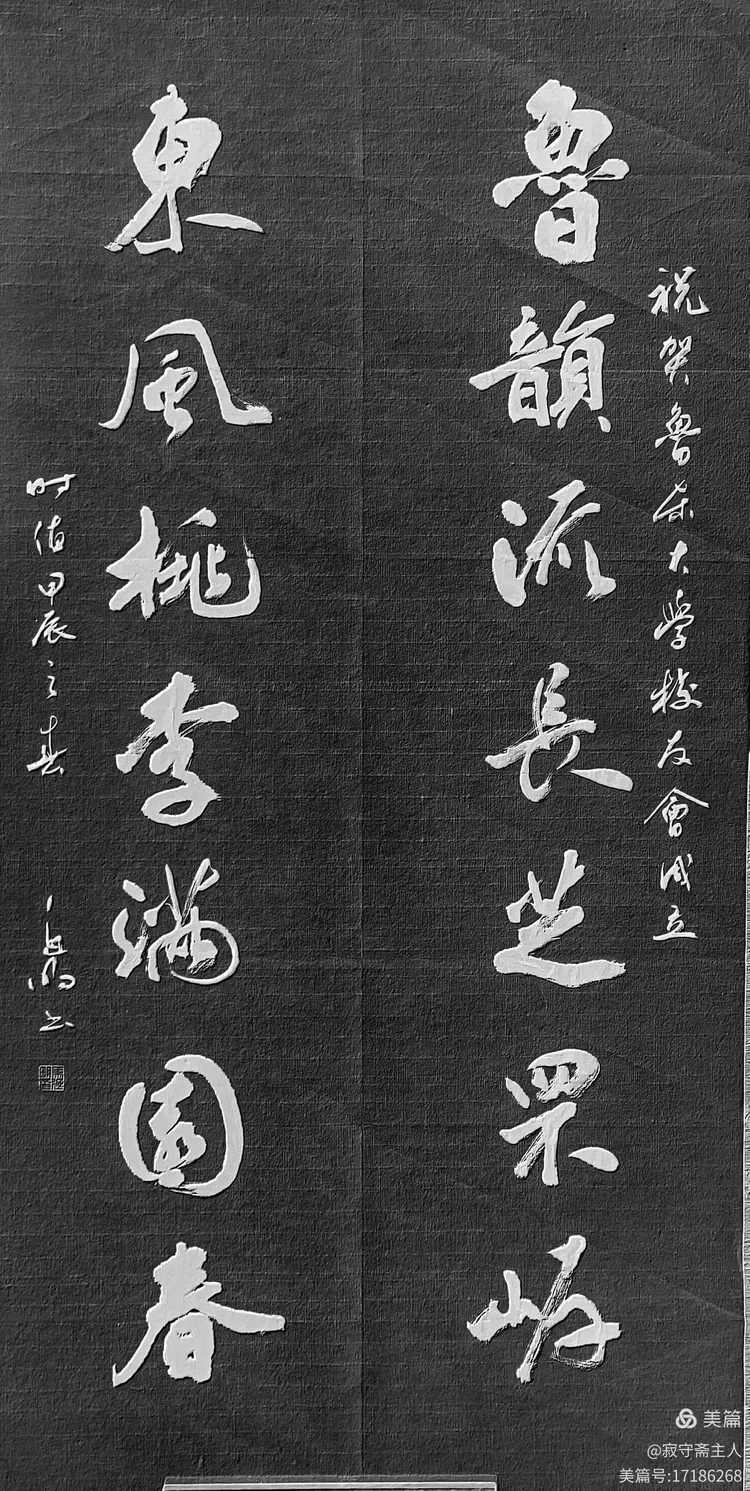 祝贺魯东大學校友會成立
魯韻流長芝罘
東風桃李滿園春
时值甲辰之春
书
美篇
@寂守斋主人
美篇号:17186268